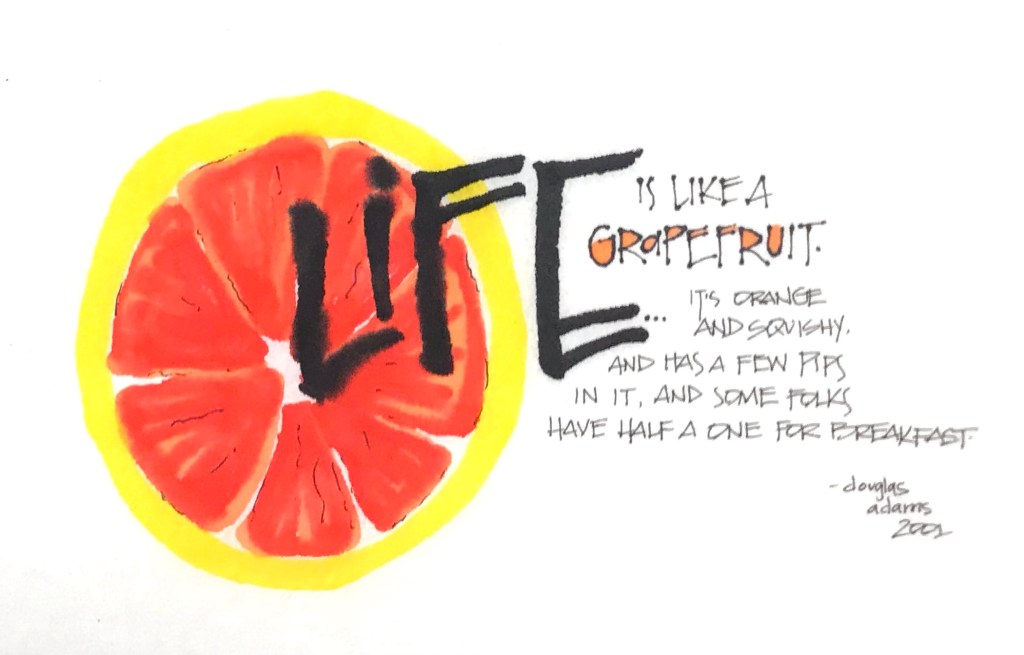 LiFE
IS LIKE A
GRAPEFRUIT.
... IT'S ORANGE
AND SQUISHY,
AND HAS A FEW PIPS
IN IT, AND SOME FOLKS
HAVE HALF A ONE FOR BREAKFAST.
- douglas
adams
2001